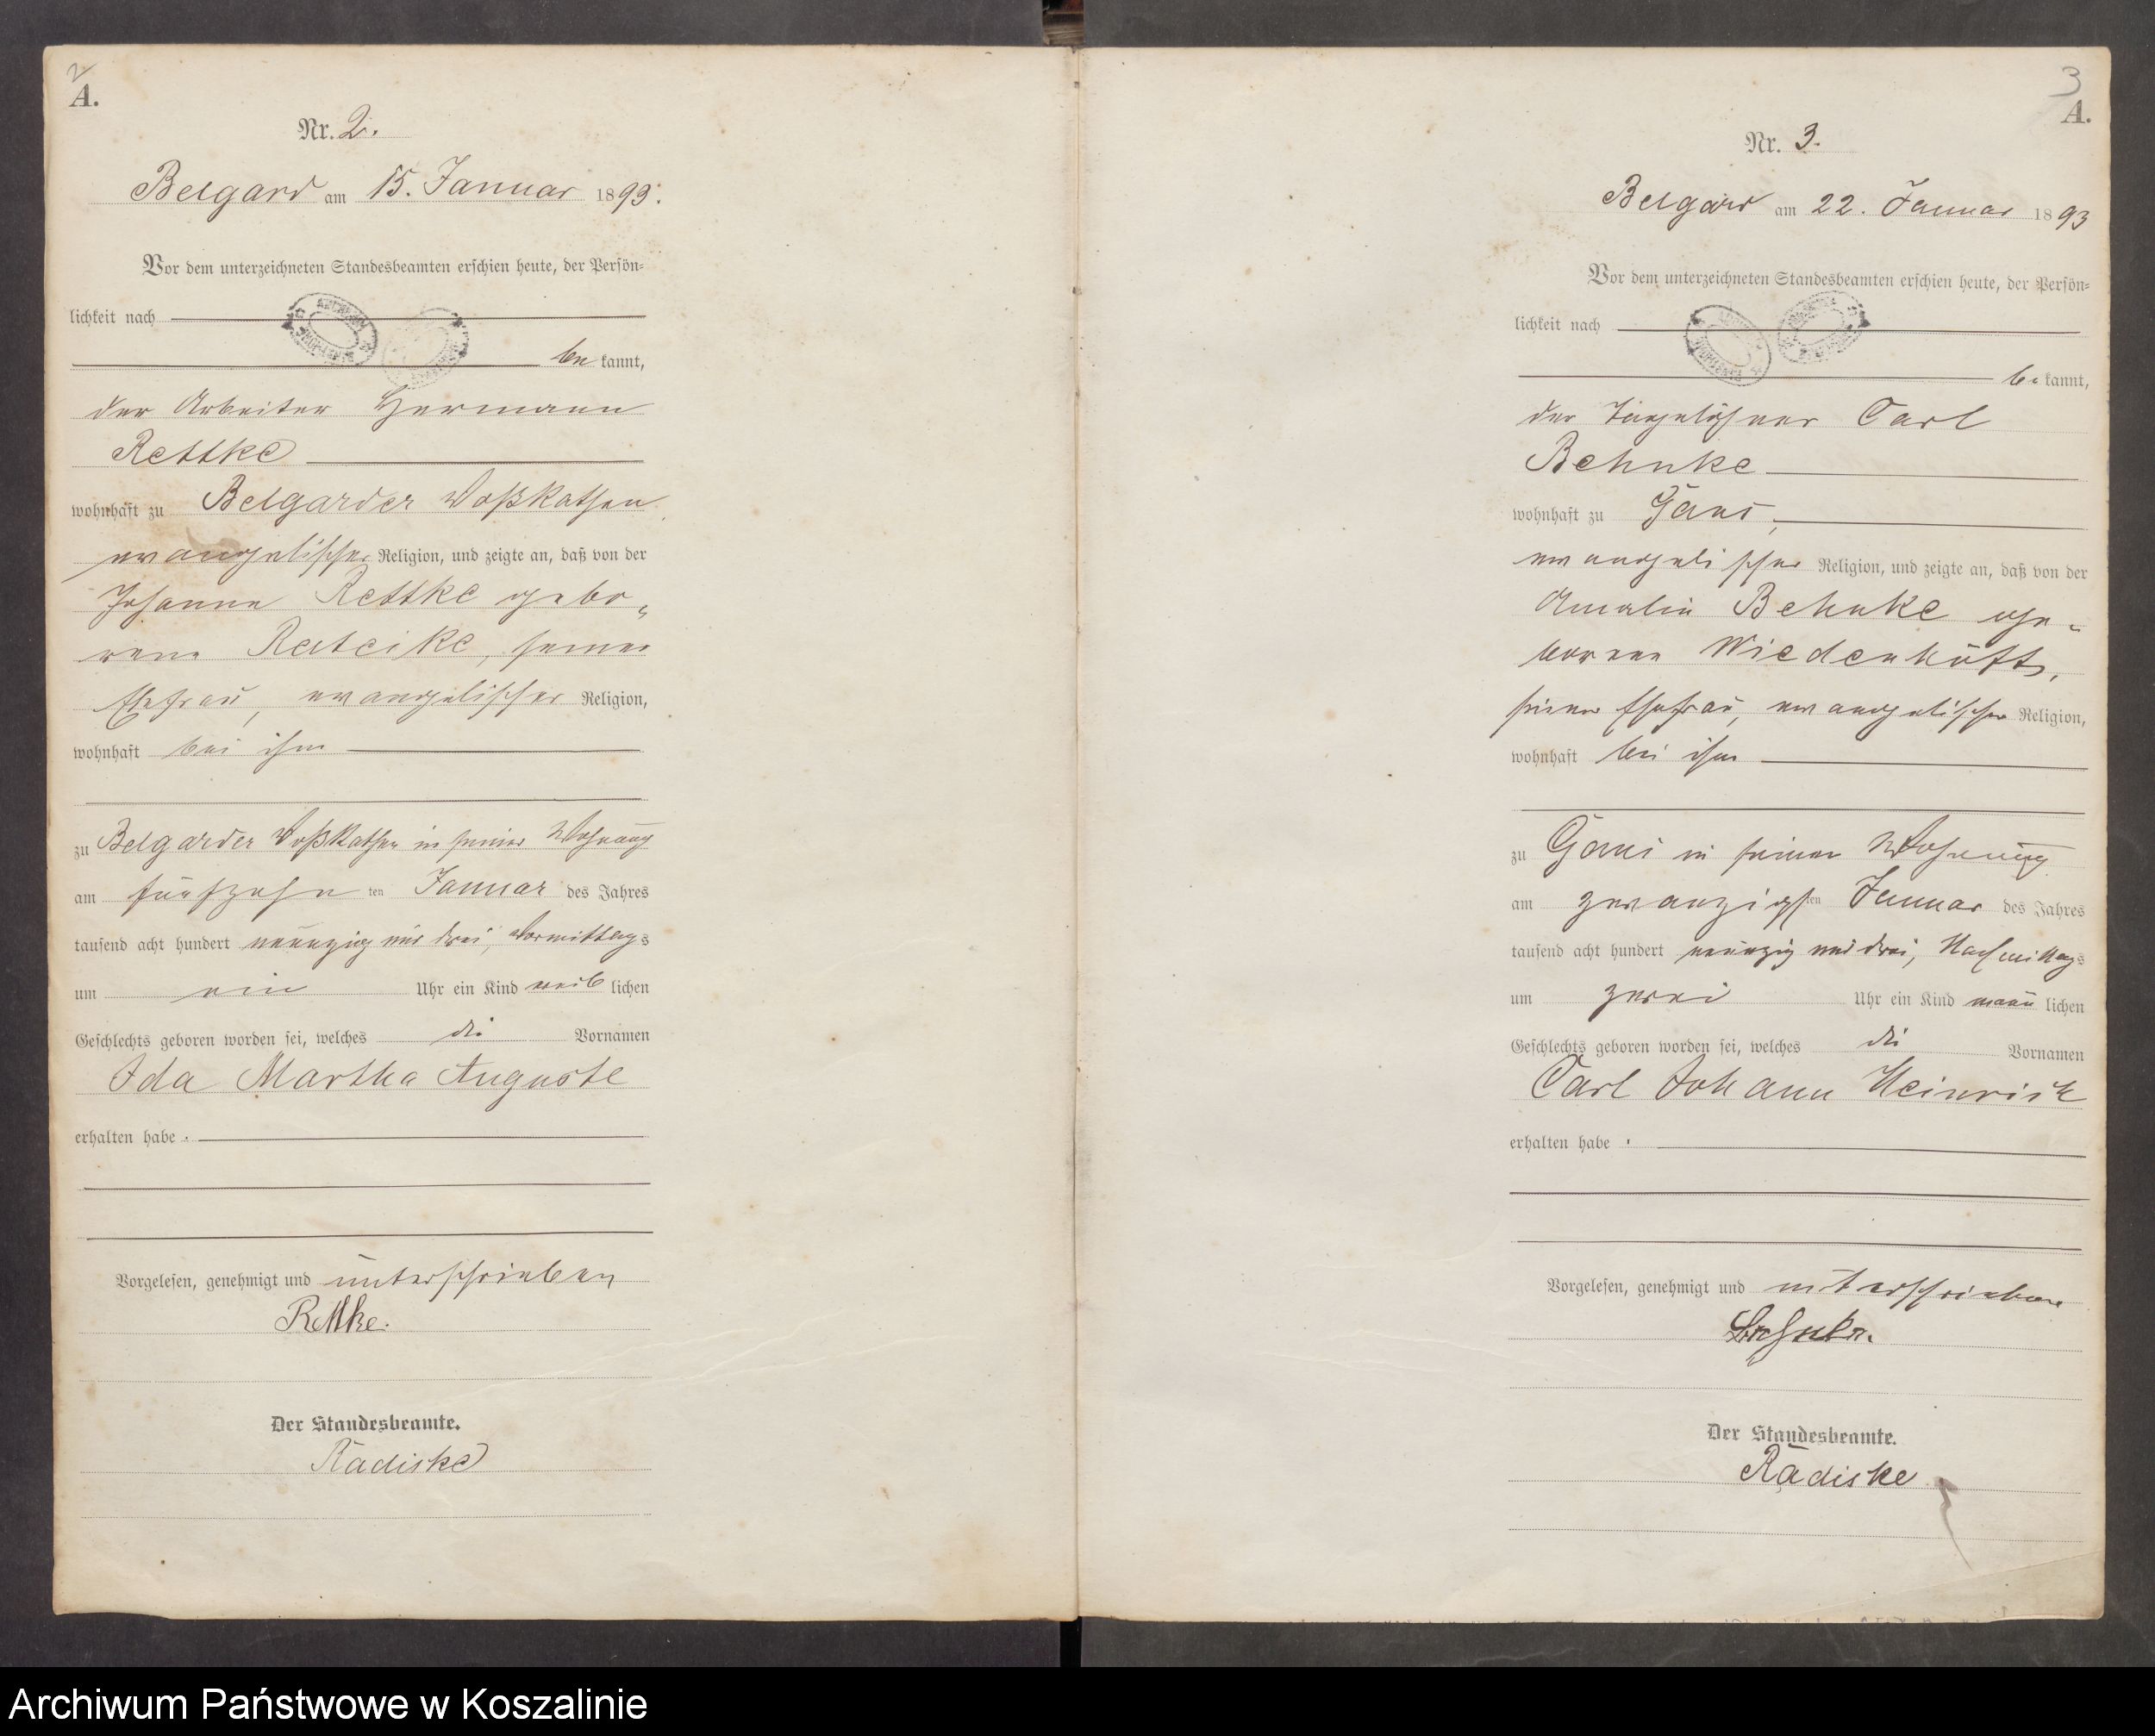 2
A.
Nr. 2.
Belgard am 15. Januar 1893.
Vor dem unterzeichneten Standesbeamten erschien heute, der Persön-
lichkeit nach
be kannt,
der Arbeiter Hermann
Rettke
wohnhaft zu Belgarder Voßkathen
evangelischer Religion, und zeigte an, daß von der
Johanne Rettke gebo-
rene Ratzike, seiner
Ehefrau, evangelischer Religion,
wohnhaft bei ihm
zu Belgarder Voßkathen in seiner Wohnung
am fünfzehn ten Januar des Jahres
tausend acht hundert neunzig und drei, Vormittags
um ein Uhr ein Kind weib lichen
Geschlechts geboren worden sei, welches die Vornamen
Ida Martha Auguste
erhalten habe.
Vorgelesen, genehmigt und unterschrieben
Rettke.
Der Standesbeamte.
Radiske
3
A.
Nr. 3.
Belgard am 22. Januar 1893
Vor dem unterzeichneten Standesbeamten erschien heute, der Persön-
lichkeit nach
be kannt,
der Tagelöhner Carl
Behnke
wohnhaft zu Gans,
evangelischer Religion, und zeigte an, daß von der
Amalie Behnke ge-
borene Wiedenhöft,
seiner Ehefrau, evangelischer Religion,
wohnhaft bei ihm
zu Gans in seiner Wohnung
am zwanzigsten Januar des Jahres
tausend acht hundert neunzig und drei, Nachmittags
um zwei Uhr ein Kind männ lichen
Geschlechts geboren worden sei, welches die Vornamen
Carl Johann Heinrich
erhalten habe.
Vorgelesen, genehmigt und unterschrieben
Behnke.
Der Standesbeamte.
Radiske
Archiwum Państwowe w Koszalinie